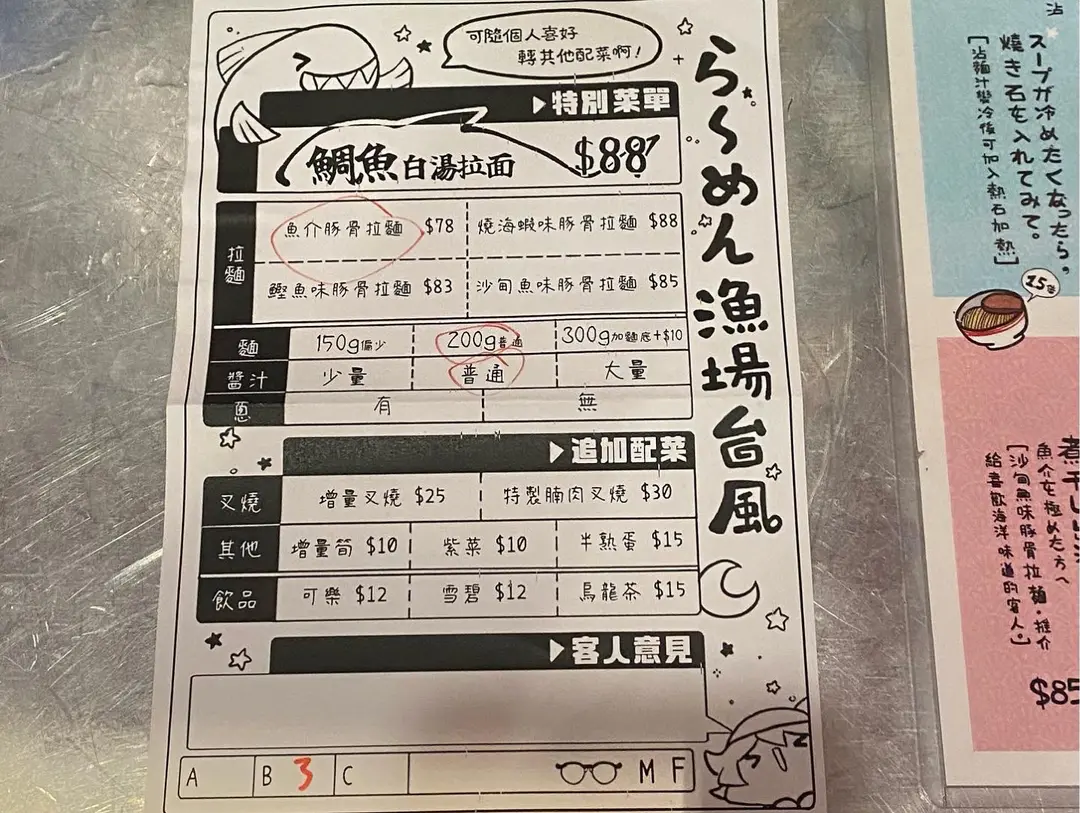 可隨個人喜好
轉其他配菜啊!
特別菜單
鯛魚白湯拉面 $88
拉麵
魚介豚骨拉麵 $78
燒海蝦味豚骨拉麵 $88
鰹魚味豚骨拉麵 $83
沙甸魚味豚骨拉麵 $85
麵 150g偏少 200g普通 300g加麵底+$10
醬汁 少量 普通 大量
蔥 有 無
追加配菜
叉燒 增量叉燒 $25 特製腩肉叉燒 $30
其他 增量筍 $10 紫菜 $10 半熟蛋 $15
飲品 可樂 $12 雪碧 $12 烏龍茶 $15
客人意見
A B 3 C M F
ら〜めん漁場台風
沾
スープが冷めたくなったら。
焼き石を入れてみて。
[沾麵汁變冷後可加入熱石加熱]
煮干し
魚介を極めた方へ
[沙甸魚味豚骨拉麵·推介
給喜歡海洋味道的客人。]
$85